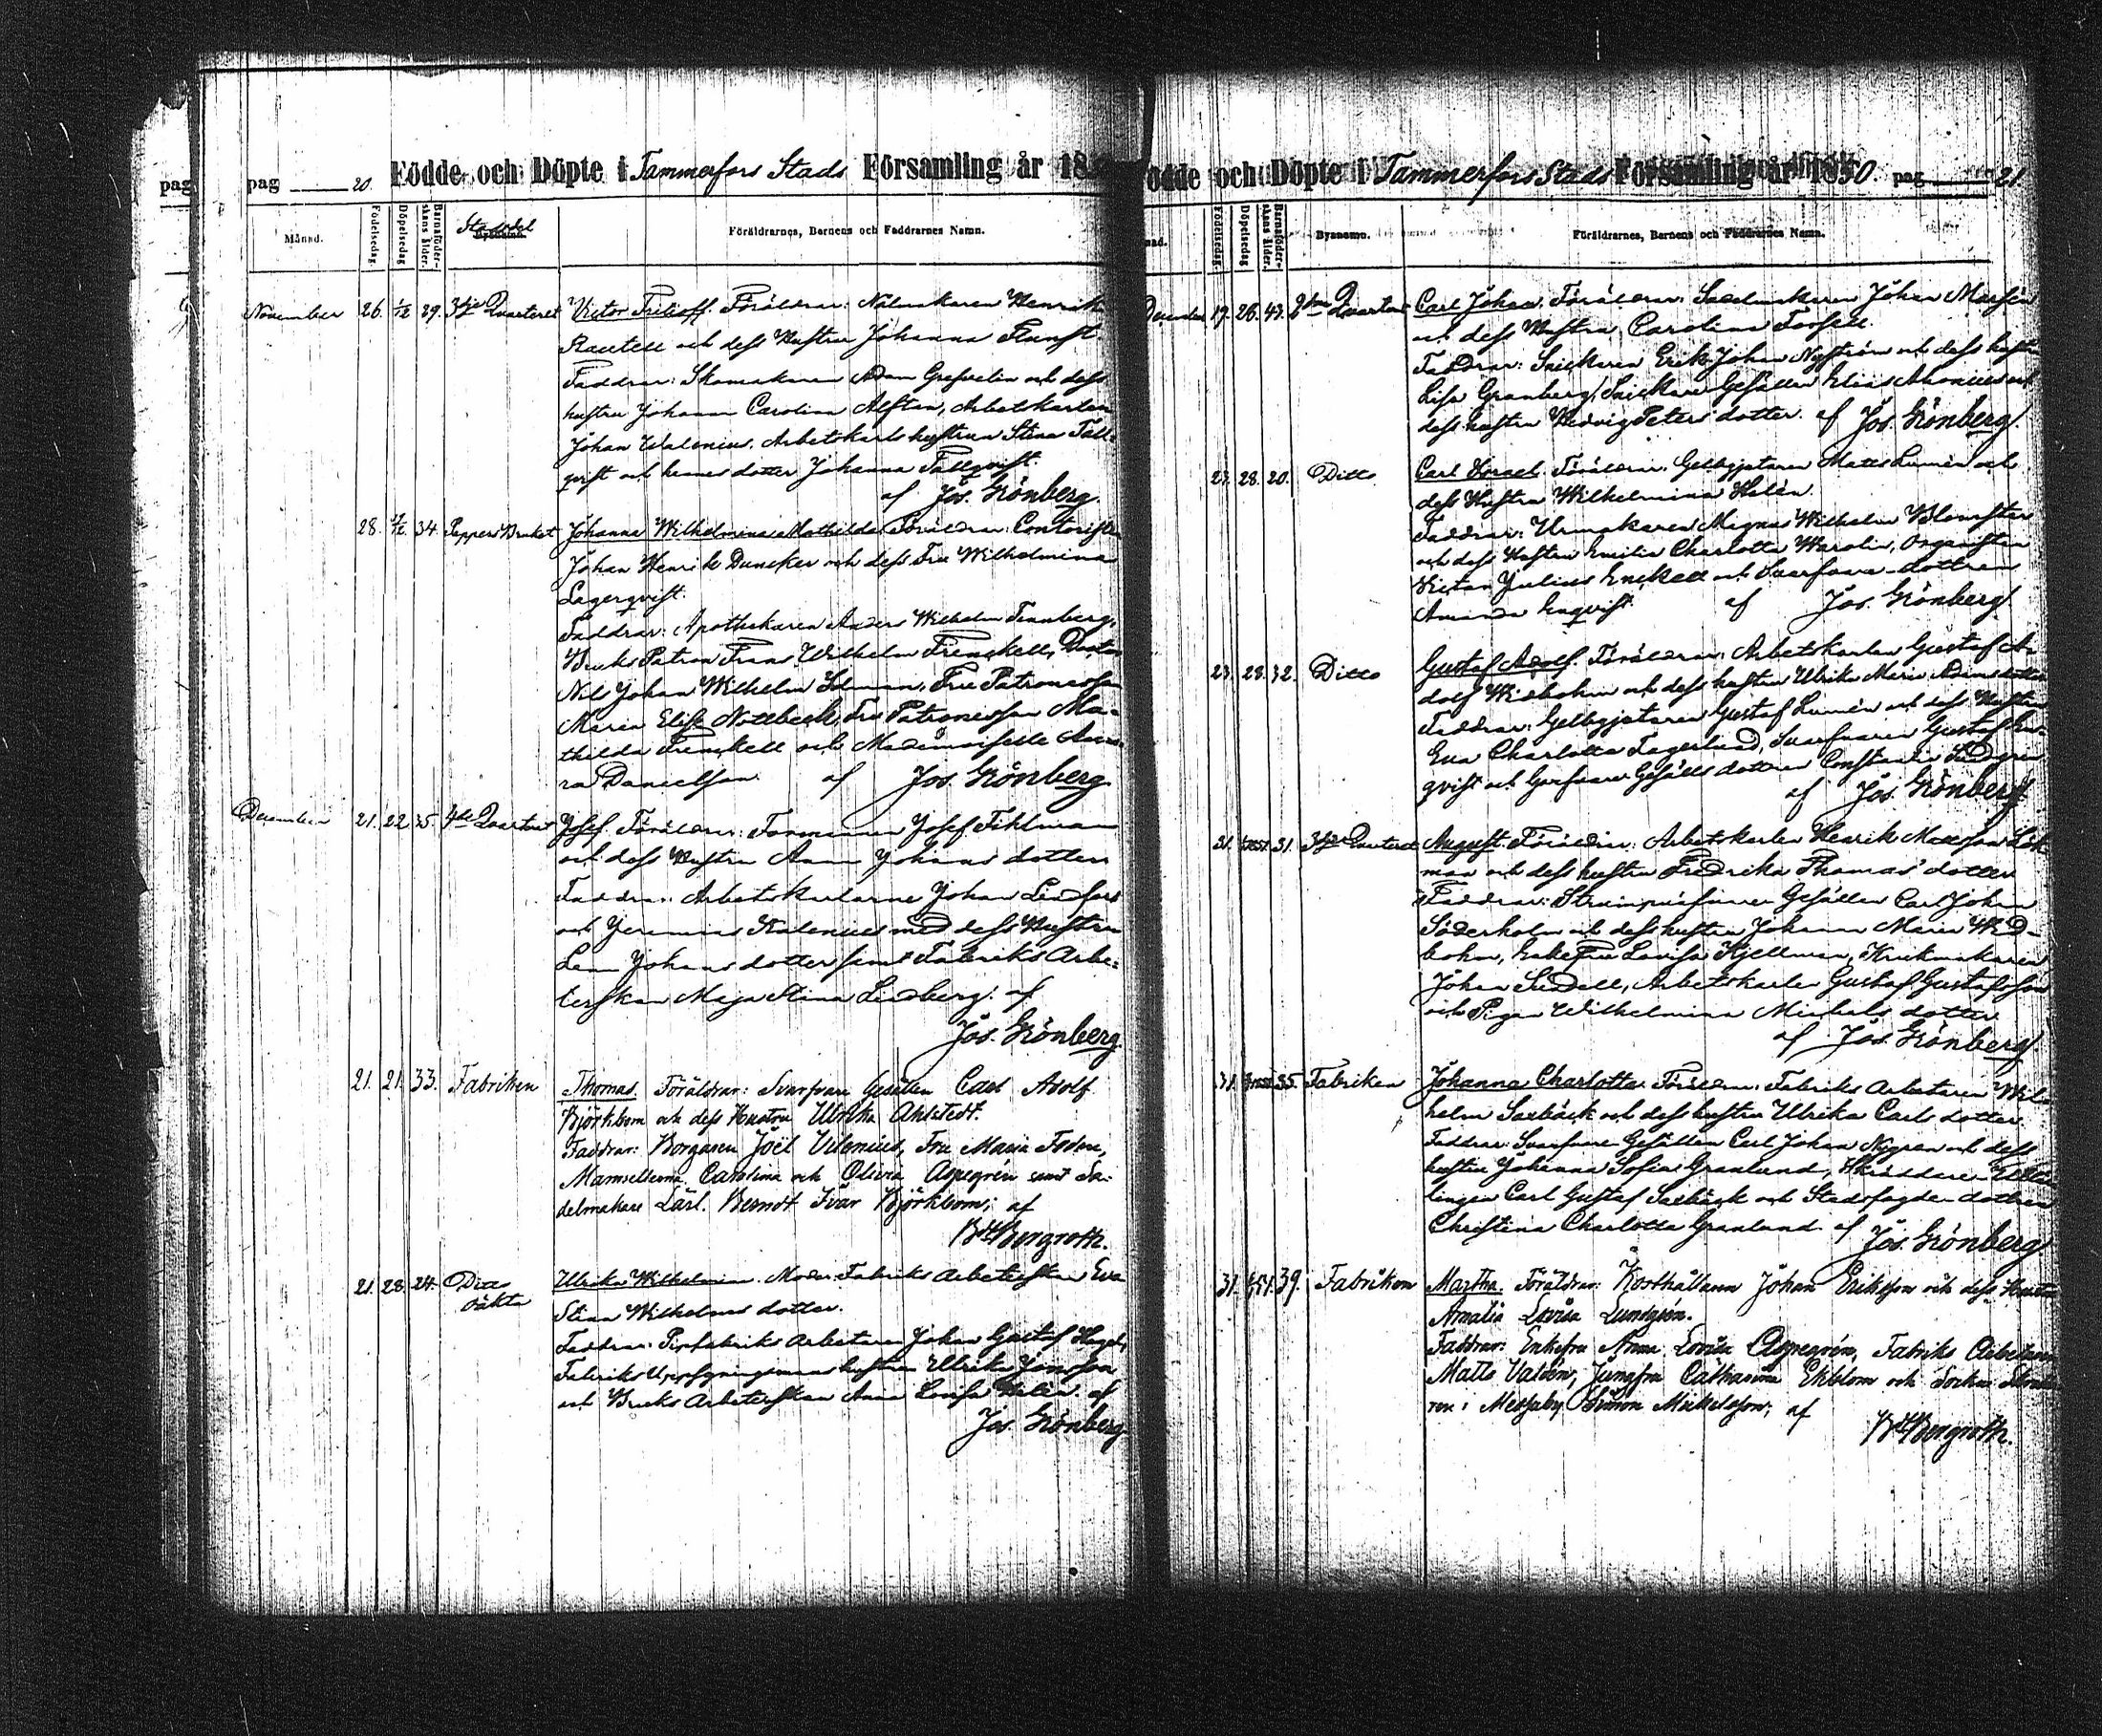 pag
pag 20. Födde och Döpte i Tammerfors Stads Församling år 18
Månad. Födelsedag. Döpelsedag Barnaföderskans ålder. Stadsdel Föräldrarnes, Barnens och Faddrarnes Namn.
November 26. 1/12 29. 3dje Quarteret Victor Fritioff. Föräldrar: Nålmakaren Henrik
och dess Hustru Johanna
Faddrar: Skomakaren Adam Grefvelin och dess
hustru Johanna Carolina Alftan, Arbetskarlen
Johan Walenius, Arbetskarls hustrun Stina Tall-
qvist och hennes dotter Johanna Tallqvist.
af Jos. Grönberg.
28. 34. Pappers Bruket Johanna Wilhelmina Mathilda. Föräldrar: Contoristen
Johan Henrik Duncker och dess Fru Wilhelmina
Lagerqvist.
Faddrar: Apothekaren Anders Wilhelm
Bruks Patron Frans Wilhelm Frenckell, Doctor
Nils Johan Wilhelm Idman, Fru Patronessan
Maria Elise Nottbeck, Fru Patronessan Ma-
thilda Frenckell och Mademoiselle Auro-
ra Danielson af Jos. Grönberg
December 21. 22. 35. 4de Quarteret Josef. Föräldrar: Formannen Josef Fihlman
och dess Hustru Anna Johans dotter
Faddrar: Arbetskarlarne Johan Lindfors
och Jeremias Kalenius med dess Hustru
Lena Johans dotter samt Fabriks Arbe-
terskan Maja Stina Lindberg. af
Jos. Grönberg.
21. 21. 33. Fabriken Thomas. Föräldrar: Svarfvare Gesällen Carl Adolf
Björkbom och dess Hustru Ulrika Ahlstedt.
Faddrar: Borgaren Joël Vilenius, Fru Maria
Mamsellerna Carolina och Olivia Aspegrén samt Sa-
delmakare Lärl. Berndt Ivar Björkbom; af
Bergroth.
21. 28. 24. Ditto Ulrika Wilhelmina. Moder: Fabriks Arbeterskan Eva
oäkta Stina Wilhelms dotter.
Faddrar: Arbetaren Johan Gustaf
Fabriks Uppsyningsmans hustrun Ulrika Jonsson
och Bruks Arbeterskan Anna Lovisa Helén. af
Jos. Grönberg
Födde och Döpte i Tammerfors Stads Församling år 1850. pag 21.
Födelsedag. Döpelsedag Barnaföderskans ålder. Bynamn. Föräldrarnes, Barnens och Faddrarnes Namn.
December 17. 26. 43. 2dra Quarteret Carl Johan. Föräldrar: Sadelmakaren Johan
och dess Hustru Carolina Forssell.
Faddrar: Snickaren Erik Johan Nyström och dess hustru
Lisa Granberg, Snickare Gesällen Elias och
dess hustru Hedvig Peters dotter. af Jos. Grönberg.
23. 28. 20. Ditto Carl Israel. Föräldrar: Gelbgjutaren Matts Lumén och
dess Hustru Wilhelmina Helén.
Faddrar: Urmakaren Magnus Wilhelm Blomster
och dess Hustru Emilia Charlotta Warolin, Organisten
Victor Julius Enckell och Svarfvare-dottren
Amanda Enqvist af Jos. Grönberg
23. 28. 32. Ditto Gustaf Adolf. Föräldrar: Arbetskarlen Gustaf A-
dolf Widbohm och dess hustru Ulrika Maria Adams dotter
Faddrar: Gelbgjutaren Gustaf Lumén och dess Hustru
Eva Charlotta Fagerlund, Svarfvaren Gustaf En-
qvist och Garfvare Gesälls dottren Constantia Lindgren
af Jos. Grönberg
31. 31. 3dje Quarteret August. Föräldrar: Arbetskarlen Henrik Mattsson
man och dess hustru Fredrika Thomas' dotter
Faddrar: Gesällen Carl Johan
Söderholm och dess hustru Johanna Maria Wid-
bohm, Enkefru Lovisa Kjellman, Krukmakaren
Johan Lindell, Arbetskarlen Gustaf Gustafsson
och Pigan Wilhelmina Michels dotter
af Jos. Grönberg
31. 35. Fabriken Johanna Charlotta. Föräldrar: Fabriks Arbetaren Wil-
helm Saxbäck och dess hustru Ulrika Carls dotter
Faddrar: Svarfvare Gesällen Carl Johan Nygren och dess
hustru Johanna Sofia Granlund, Skräddare
lingen Carl Gustaf Saxbäck och Stadsfogde dottren
Christina Charlotta Granlund. af Jos. Grönberg
31. 39. Fabriken Martha. Föräldrar: Johan Eriksson och dess Hustru
Amalia Lovisa Lundgrén.
Faddrar: Enkefru Anna Lovisa Aspegrén, Fabriks Arbetaren
Matts Valdén, Jungfru Catharina Ekblom och Socken
ren i Messuby Simon Mickelsson; af
Bergroth.